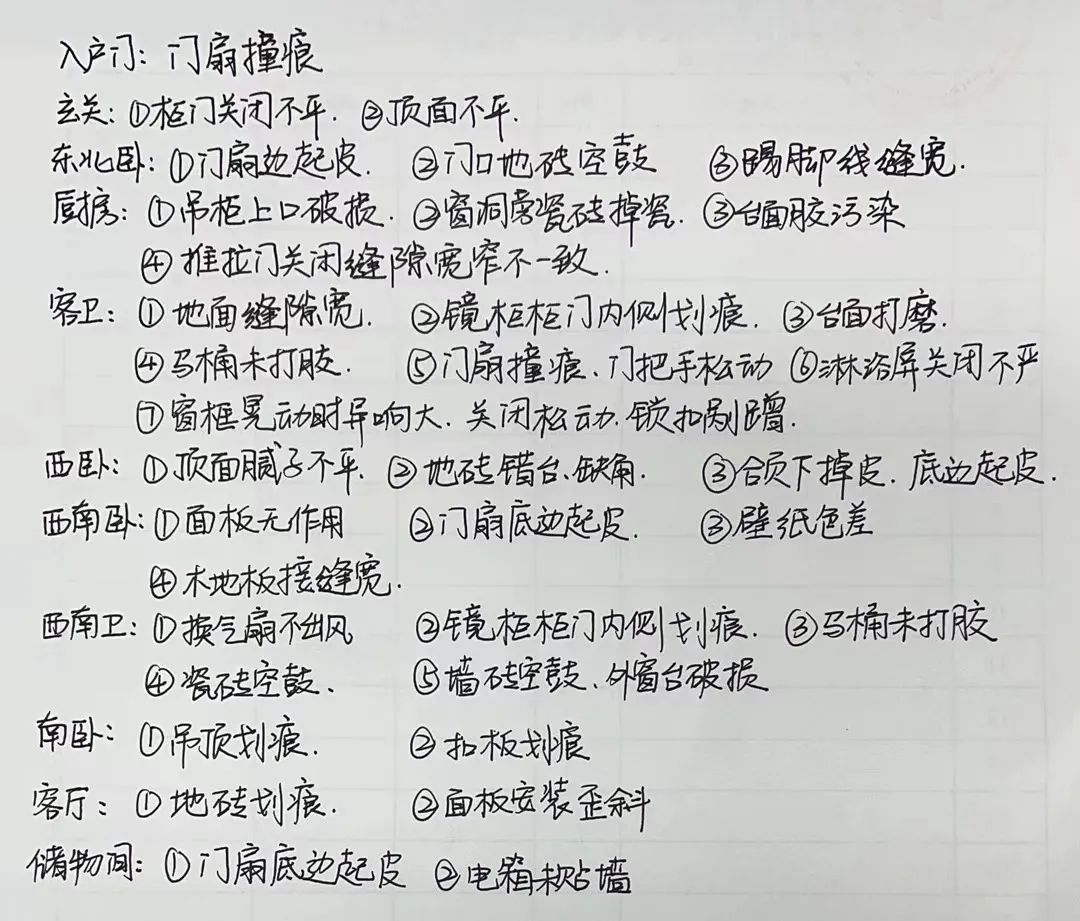 入户门: 门扇撞痕
玄关: ①柜门关闭不平. ②顶面不平.
东北卧: ①门扇边起皮. ②门口地砖空鼓 ③踢脚线缝宽.
厨房: ①吊柜上口破损. ②窗洞旁瓷砖掉瓷. ③台面胶污染
④推拉门关闭缝隙宽窄不一致.
客卫: ①地面缝隙宽. ②镜柜柜门内侧划痕. ③台面打磨.
④马桶未打胶. ⑤门扇撞痕、门把手松动 ⑥淋浴屏关闭不严
⑦窗框晃动时异响大. 关闭松动. 锁扣剐蹭.
西卧: ①顶面腻子不平. ②地砖错台、缺角. ③合页下掉皮. 底边起皮.
西南卧: ①面板无作用 ②门扇底边起皮. ③壁纸色差
④木地板接缝宽.
西南卫: ①换气扇不出风 ②镜柜柜门内侧划痕. ③马桶未打胶
④瓷砖空鼓. ⑤墙砖空鼓、外窗台破损
南卧: ①吊顶划痕. ②扣板划痕
客厅: ①地砖划痕. ②面板安装歪斜
储物间: ①门扇底边起皮 ②电箱未贴墙